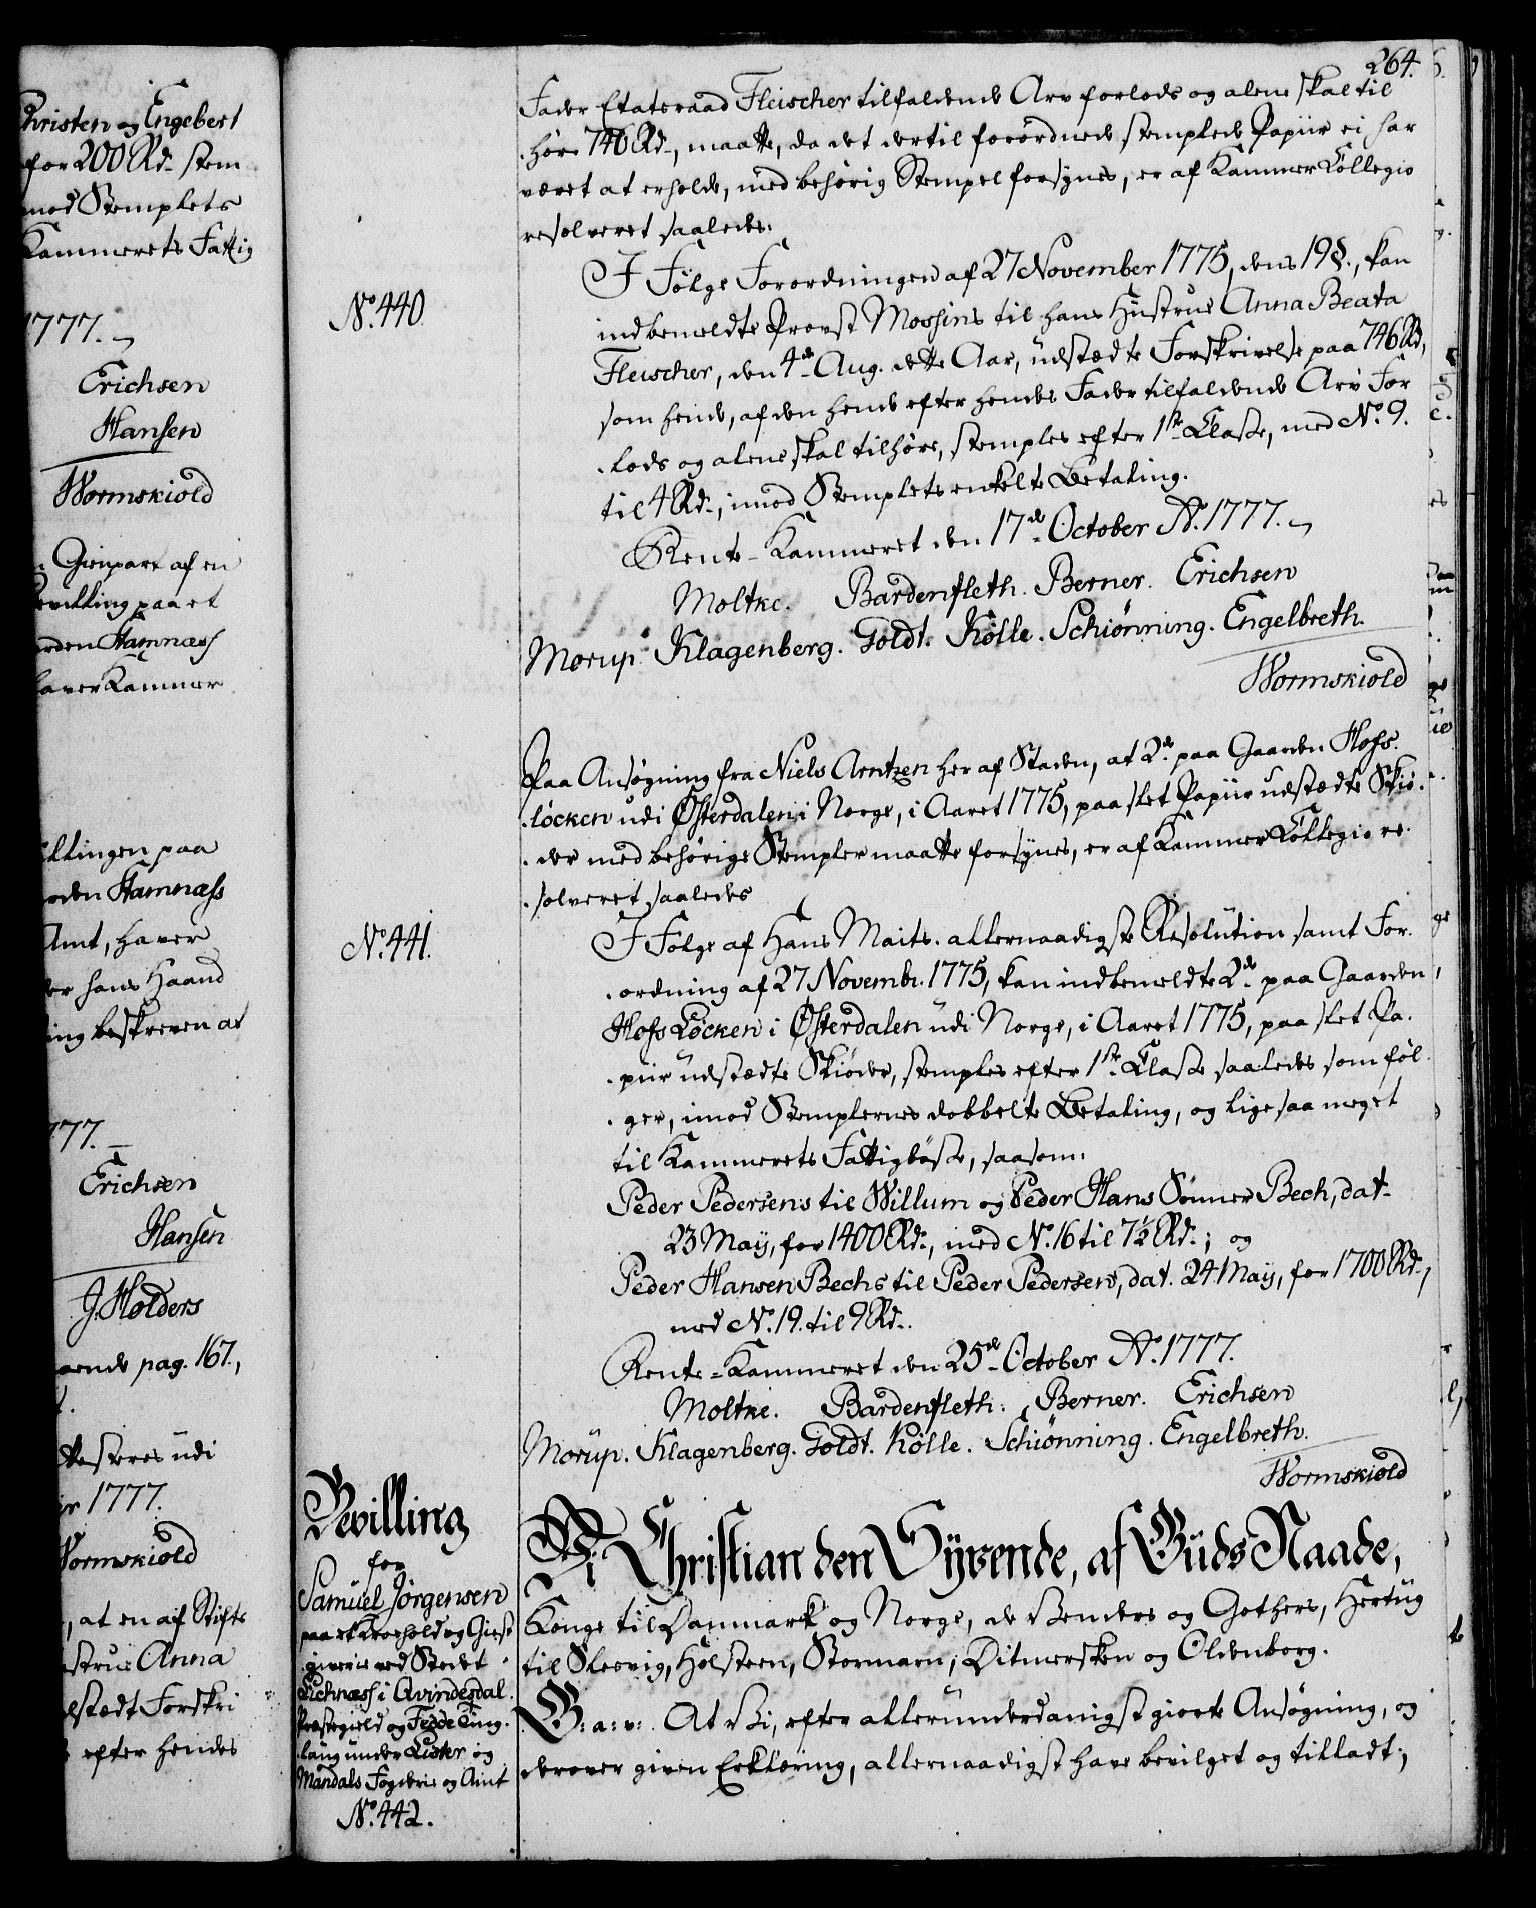 hristen og Engebert
for 200 Rd. stem
mod Stemplets
Kammerets Fattig
1777.
Erichsen
Hansen
Wormskiold
Gienpart af en
evilling paa et
rden Hamnæss
haver Kammer
illingen paa
rden Hamnæss
Amt, haver
er hans Haand
ing beskreven at
777.
Erichsen
Hansen
J. Holders
aende pag. 167.,
ttesteres udi
1777.
Wormskiold
, at en af Stifts
strue Anna
dstædt Forskri
efter hendes
264.
Fader Etatsraad Fleischer tilfaldende Arv forlods og alene skal til
høre 746 Rd., maatte, da det dertil forordnede stemplede Papiir ei har
været at erholde, med behørig Stempel forsynes, er af Kammer Collegio
resolveret saaledes.
No. 440.
I Følge Forordningen af 27 November 1775, dens 19 §., kan
indbemeldte Provst Mossins til hans Hustrue Anna Beata
Fleischer, den 4de Aug. dette Aar, udstædte Forskrivelse paa 746 Rd,
som hende, af den hende efter hendes Fader tilfaldende Arv For
lods og alene skal tilhøre, stemples efter 1ste Classe, med No. 9.
til 4 Rd., imod Stemplets enkelte Betaling.
Rente-Kammeret den 17de October Ao. 1777.
Moltke. Bardenfleth. Berner. Erichsen
Morup. Klagenberg. Goldt. Kölle. Schiönning. Engelbreth.
Wormskiold
Paa Ansøgning fra Niels Arntzen her af Staden, at 2de paa Gaarden Hofs
löcken udi Österdalen i Norge, i Aaret 1775, paa slet Papiir udstædte Skiö
der med behørige Stempler maatte forsynes, er af Kammer Collegio re
solveret saaledes
No. 441.
I Følge af Hans Maits. allernaadigste Resolution samt For
ordning af 27 Novembr. 1775, kan indbemeldte 2de paa Gaarden
Hofs Löcken i Österdalen udi Norge, i Aaret 1775, paa slet Pa
piir udstædte Skiöder, stemples efter 1ste Classe saaledes som föl
ger, imod Stemplernes dobbelte Betaling, og lige saa meget
til Kammerets Fattigbösse, saasom:
Peder Pedersens til Willum og Peder Hans Sönner Bech, dat.
23 May, for 1400 Rd., med No. 16 til 7½ Rd.; og
Peder Hansen Bechs til Peder Pedersen, dat. 24 May, for 1700 Rd.,
med No. 19. til 9 Rd.
Rente-Kammeret den 25de October Ao. 1777.
Moltke. Bardenfleth. Berner. Erichsen
Morup. Klagenberg. Goldt. Kölle. Schiönning. Engelbreth.
Wormskiold
Bevilling
for
Samuel Jörgensen
paa et Kroehold og Giest
giverie ved Stedet
Lichnæss i Qvindesdal
Præstegield og Fedde Ting
laug under Lister og
Mandals Fogderie og Amt
No. 442.
Vi Christian den Syvende, af Guds Naade,
Konge til Danmark og Norge, de Venders og Gothers, Hertug
til Slesvig, Holsteen, Stormarn, Ditmersken og Oldenborg.
G: a: v: At Vi, efter allerunderdanigst giorte Ansøgning, og
derover given Erklæring, allernaadigst have bevilget og tilladt,